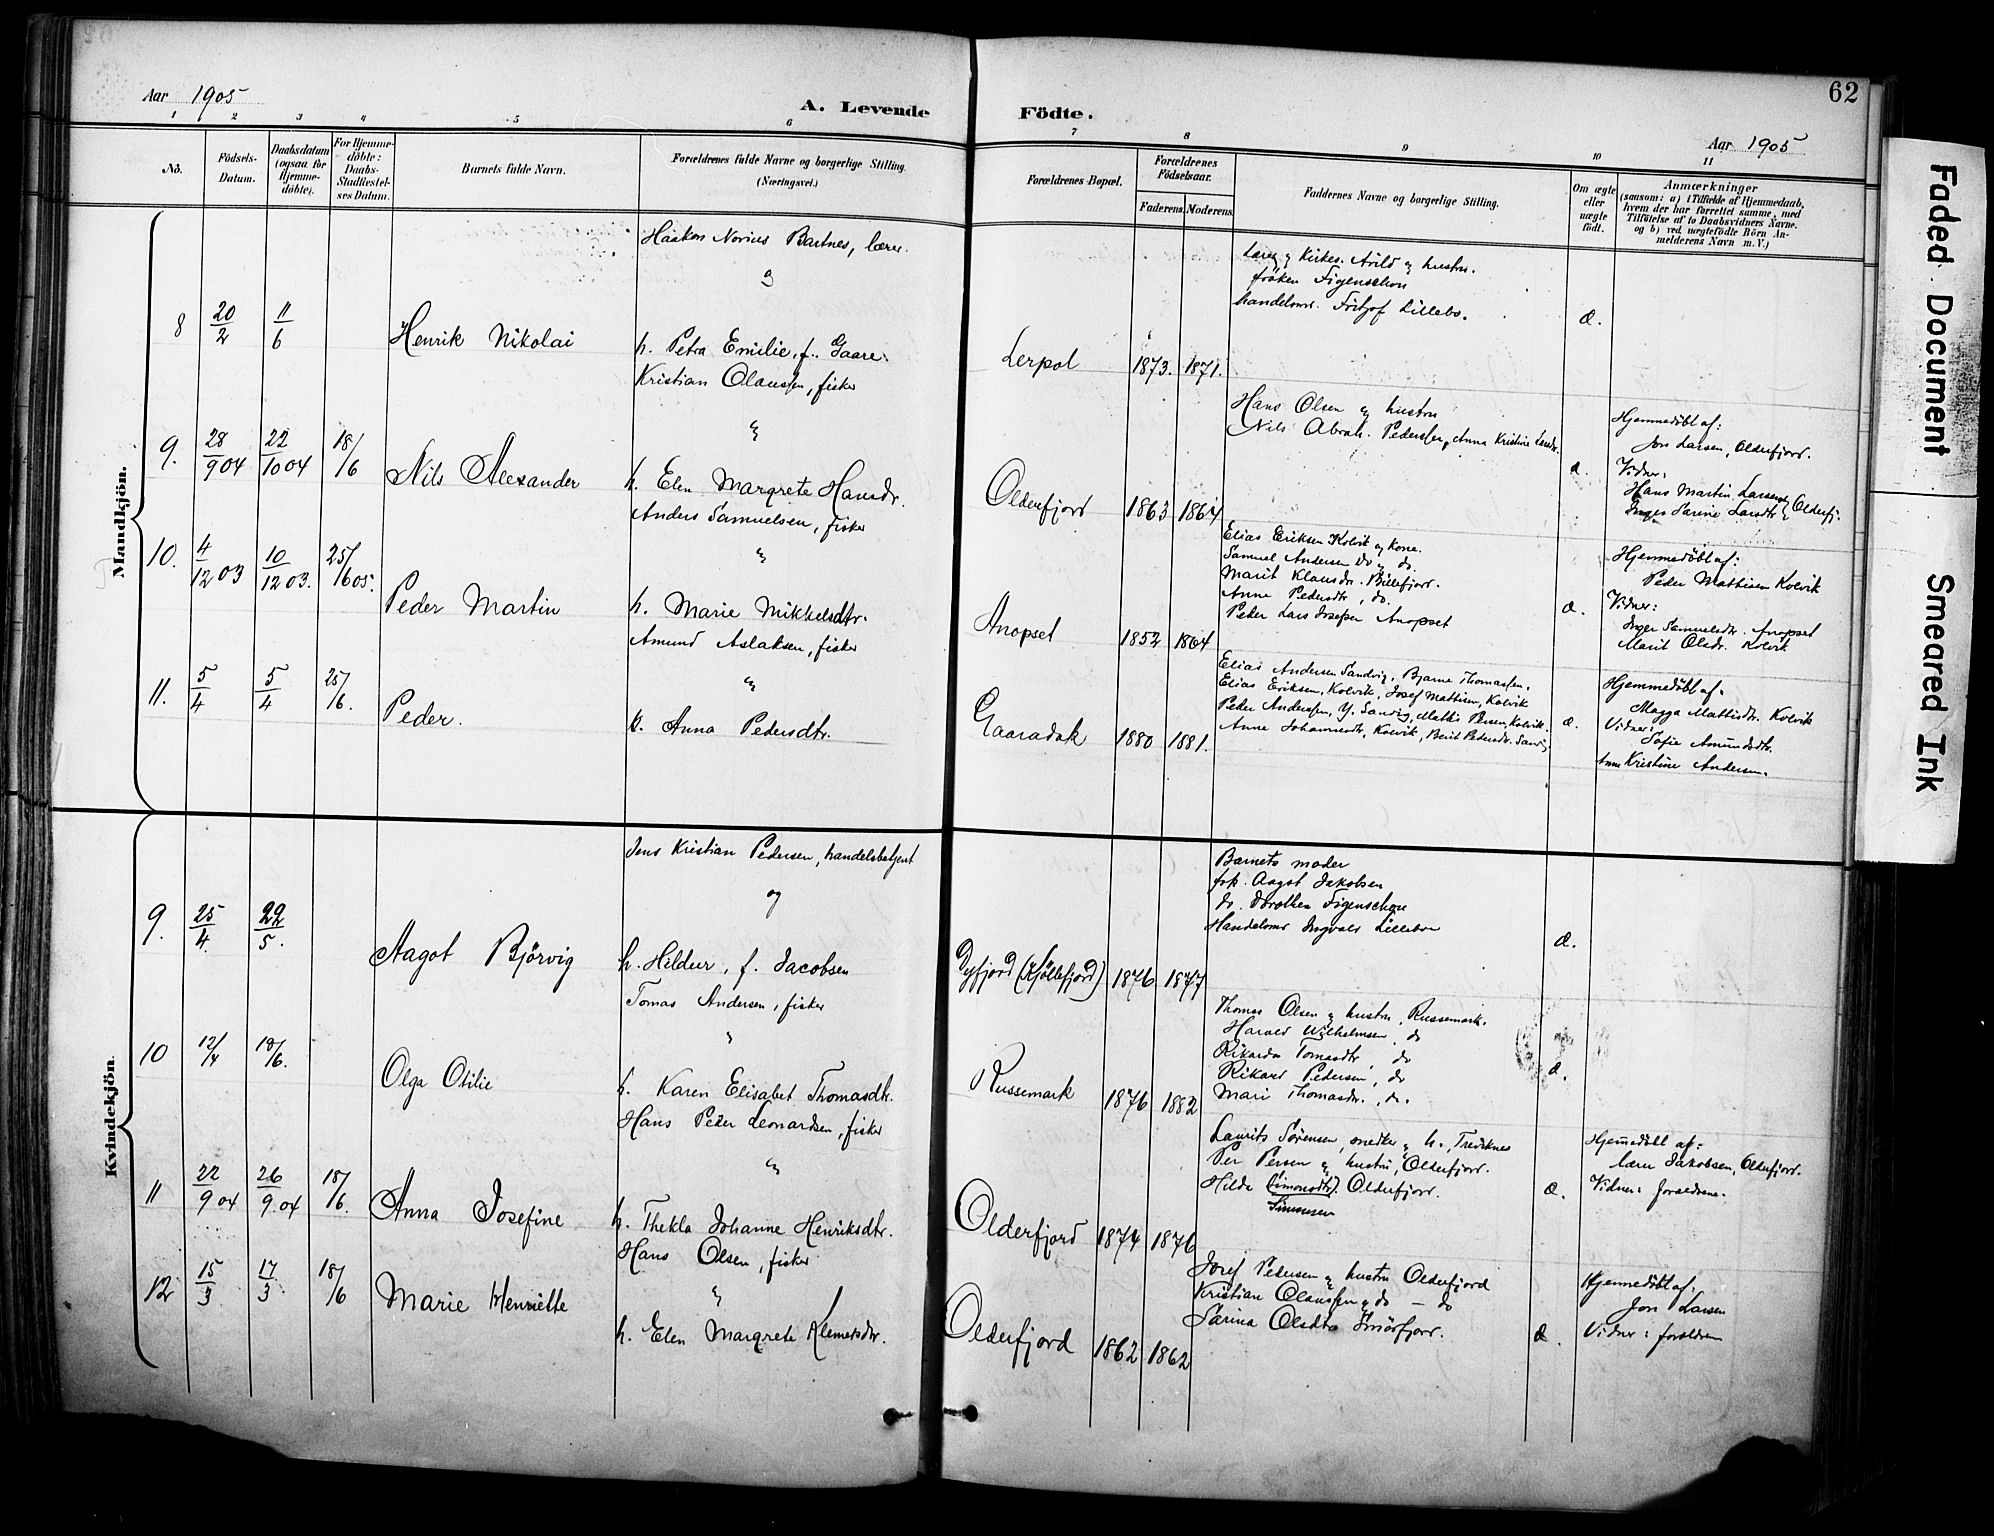 62
Aar 1905
A. Levende Födte.
Aar 1905
1 2 3 4 5 6 7 8 9 10 11
No.
Födsels-
Datum.
Daabsdatum
(ogsaa for
Hjemme-
döbte).
For Hjemme-
döbte:
Daabs-
Stadfæstel-
ses Datum.
Barnets fulde Navn.
Forældrenes fulde Navne og borgerlige Stilling.
(Næringsvei.)
Forældrenes Bopæl.
Forældrenes
Födselsaar.
Faderens Moderens
Faddernes Navne og borgerlige Stilling.
Om ægte
eller
uægte
födt.
Anmærkninger
(saasom: a) i Tilfælde af Hjemmedaab,
hvem der har forrettet samme, med
Tilföielse af to Daabsvidners Navne.
og b) ved uægtefödte Börn An-
melderens Navn m. V.)
Mandkjön.
8
20/2
11/6
Henrik Nikolai
Haakon Norius Bartnes, lærer.
og
h. Petra Emilie, f. Gaare.
Lerpol
1873. 1871.
Lærer og Kirkes. Arild og hustru.
fröken Figenschou
handelsm. Fritjof Lillebo.
æ.
9.
28/9 04
22/10 04
18/6
Nils Alexander
Kristian Olaussen, fisker
og
h. Elen Margrete Hansdr.
Olderfjord
1863 1864
Hans Olsen og hustru
Nils Abrah. Pedersen, Anna Kristine Larsdr.
æ.
Hjemmedöbt af:
Jon Larsen, Olderfjord.
Vidner:
Hans Martin Larsen og Olderfj.
Inger Sarine Larsdtr
10.
4/12 03
10/12 03.
25/6 05.
Peder Martin
Anders Samuelsen, fisker
og
h. Marie Mikkelsdtr.
Anopset
1852 1864
Elias Eriksen Kolvik og kone.
Samuel Andersen do og do.
Marit Klausdr. Billefjord.
Anne Pedersdtr, do.
Peder Lars Josefsen Anopset
æ.
Hjemmedöbt af:
Peder Mathisen Kolvik
Vidner:
Inger Samuelsdr. Anopset
Marit Olsdr. Kolvik
11.
5/4
5/4
25/6.
Peder.
Amund Aslaksen, fisker
og
h. Anna Pedersdtr.
Gaaradak
1880 1881.
Elias Andersen Sandvig, Bjarne Thomassen.
Elias Eriksen, Kolvik, Josef Mathisen, Kolvik
Peder Anderssen, Y. Sandvig, Mathis Persen, Kolvik.
Anne Johannesdtr, Kolvik, Berit Pedersdr. Sandvig
æ.
Hjemmedöbt af:
Magga Mathisdtr. Kolvik
Vidner:
Sofie Amundsdtr.
Anne Kristine Andersen.
Kvindekjön.
9.
25/4.
22/5.
Aagot Björvig
Jens Kristian Pedersen, handelsbetjent
og
h. Hildur, f. Jacobsen
Dyfjord (Kjöllefjord)
1876 1877
Barnets moder
frk. Aagot Jakobsen
do. Dorothea Figenschou
Handelsmd Ingvald Lillebo
æ.
10
12/4
18/6.
Olga Otilie
Tomas Andersen, fisker
"
h. Karen Elisabet Thomasdtr.
Russemark
1876 1882
Thomas Olsen og hustru, Russemark.
Harald Wilhelmsen, do
Rikarda Tomasdtr, do
Rikard Pedersen, do
Mari Thomasdr., do.
æ.
11
22/9 04
26/9 04
18/6.
Anna Josefine
Hans Peder Leonardsen, fisker
og
h. Thekla Johanne Henriksdtr.
Olderfjord
1874 1876
Laurits Sörensen, snedker og h.,
Per Persen og hustru, Olderfjord.
Hilda (Simonsdtr). Olderfjord.
Simonsen
æ.
Hjemmedöbt af:
lærer Jakobsen, Olderfjord.
Vidner: forældrene.
12
15/3
17/3
18/6
Marie Henriette
Hans Olsen, fisker
og
h. Elen Margrete Klemetsdtr.
Olderfjord
1862 1862
Josef Pedersen og hustru Olderfjord
Kristian Olaussen og do - do
Sarina Olsdtr Smörfjord.
æ.
Hjemmedöbt af:
Jon Larsen
Vidner: forældrene
Faded Document
Smeared Ink